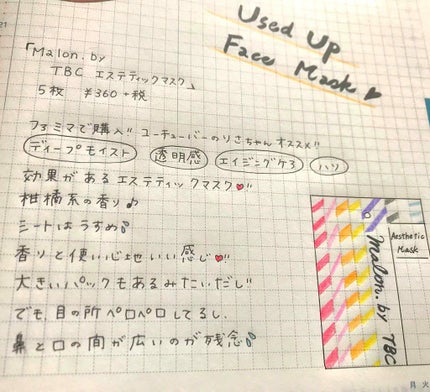 21
Used Up
Face Mask
「Malon.by
TBC エステティックマスク」
5枚 ¥360+税
ファミマで購入!! ユーチューバーのりさちゃんオススメ!!
ディープモイスト 透明感 エイジングケア ハリ
効果があるエステティックマスク!!
柑橘系の香り♪
シートはうすめ
香りと使い心地いい感じ!!
大きいパックもあるみたいだし!!
でも、目の所ペロペロしてるし、
鼻と口の間が広いのが残念
Aesthetic
Mask
Malon.by TBC
月 火